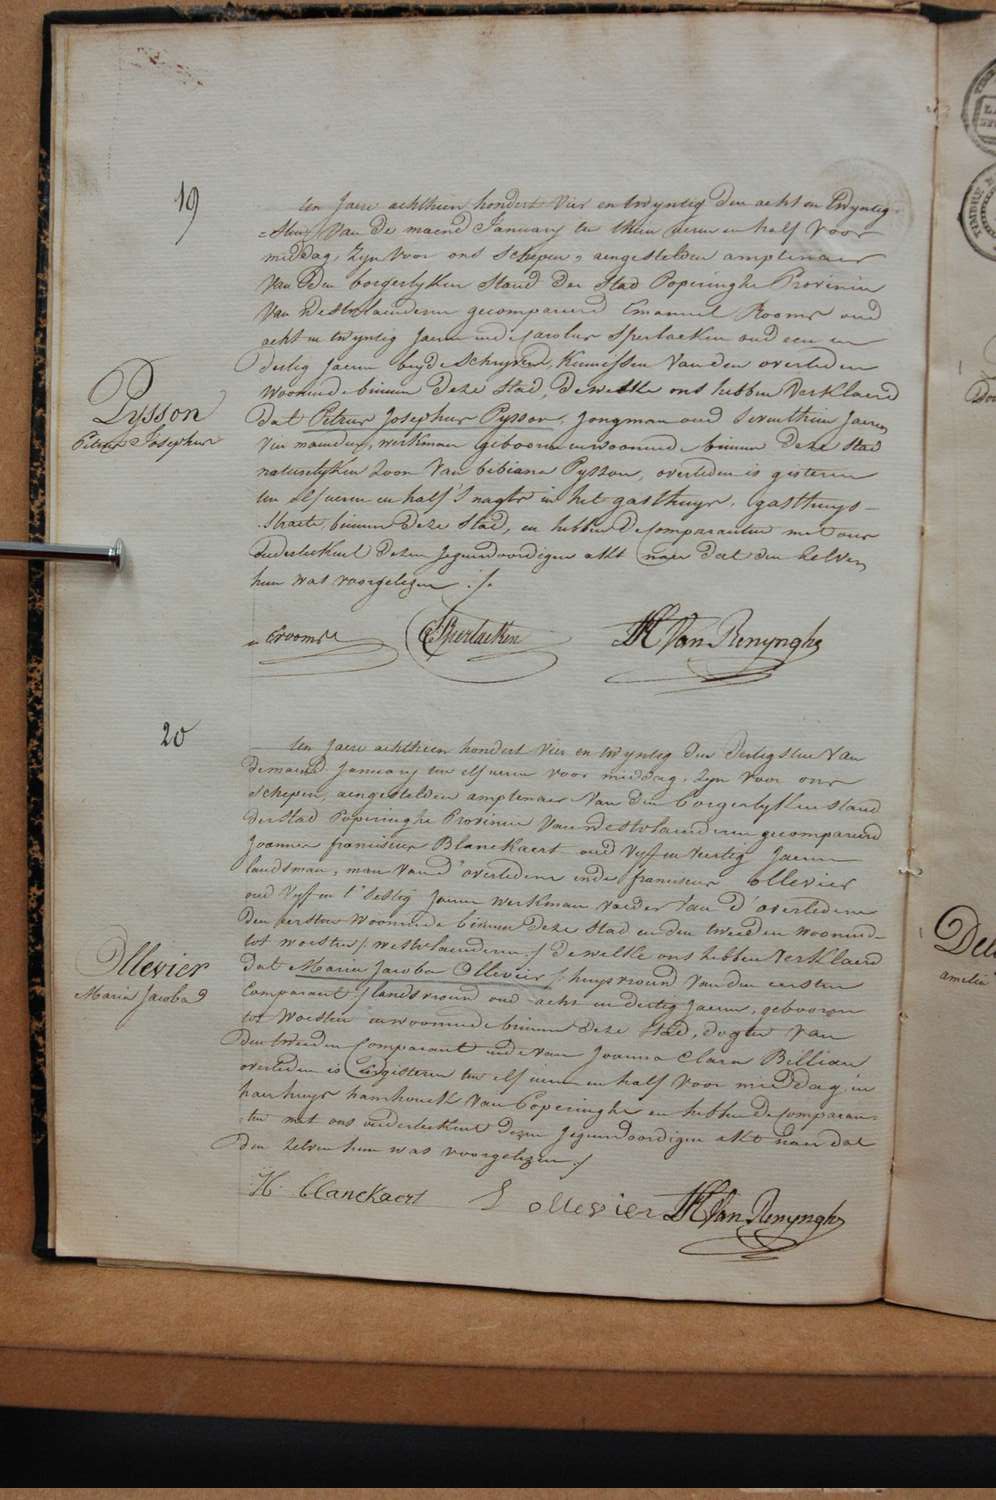 19
ten Jaere achthien hondert vier en twyntig den acht en twyntig-
=sten van de maend January ten thien ueren en half voor
middag, Zyn voor ons Schepen, aengestelden amptenaer
van den borgerlyken Stand der Stad Poperinghe Provincie
van Westvlaenderen gecompareerd Emanuel Rooms oud
acht en twyntig Jaeren ende Carolus Sperlaeken oud een en
dertig Jaeren beyde Schryvers, Kennissen van den overleden
woonende binnen deze Stad, dewelke ons hebben verklaerd
Dat Petrus Josephus Pysson, Jongman oud seventhien Jaeren
Pysson
Petrus Josephus
vier maenden, werkman geboren en woonende binnen deze Stad
natuerlyken Zoon van bibiana Pysson, overleden is gisteren
ten elf ueren en half 's nagts in het gasthuys, gasthuys-
Straete, binnen deze Stad, en hebben de Comparanten met ons
onderteekent dezen Jegenwoordigen akt naer dat den zelven
hun was voorgelezen ./.
E rooms C Sperlaeken Van Renynghe
20
ten Jaere achthien hondert vier en twyntig den dertigsten van
de maend January ten elf ueren voor middag, Zyn voor ons
Schepen, aengestelden amptenaer van den borgerlyken stand
der Stad Poperinghe Provincie van Westvlaenderen gecompareerd
Joannes franciscus Blanckaert oud vyf en veertig Jaeren
landsman, man van d'overledene ende franciscus ollevier
oud vyf en t'sestig Jaeren werkman vaeder van d'overledene
den eersten woonende binnen deze Stad en den tweeden woonend-
tot woesten / westvlaenderen / dewelke ons hebben verklaerd
Dat Maria Jacoba Ollevier / huysvrouw van den eersten
Ollevier
Maria Jacoba
Comparant / landsvrouw oud acht en dertig Jaeren, gebooren
tot Woesten en woonende binnen deze Stad, dogter van
den tweeden Comparant ende van Joanna Clara Billiau
overleden is eergisteren ten elf ueren en half voor middag in
haer huys hamhouck van Poperinghe en hebben de Comparan-
ten met ons onderteekent dezen Jegenwoordigen akt naer dat
den zelven hun was voorgelezen ./
blanckaert ollevier Van Renynghe
Del
amelia